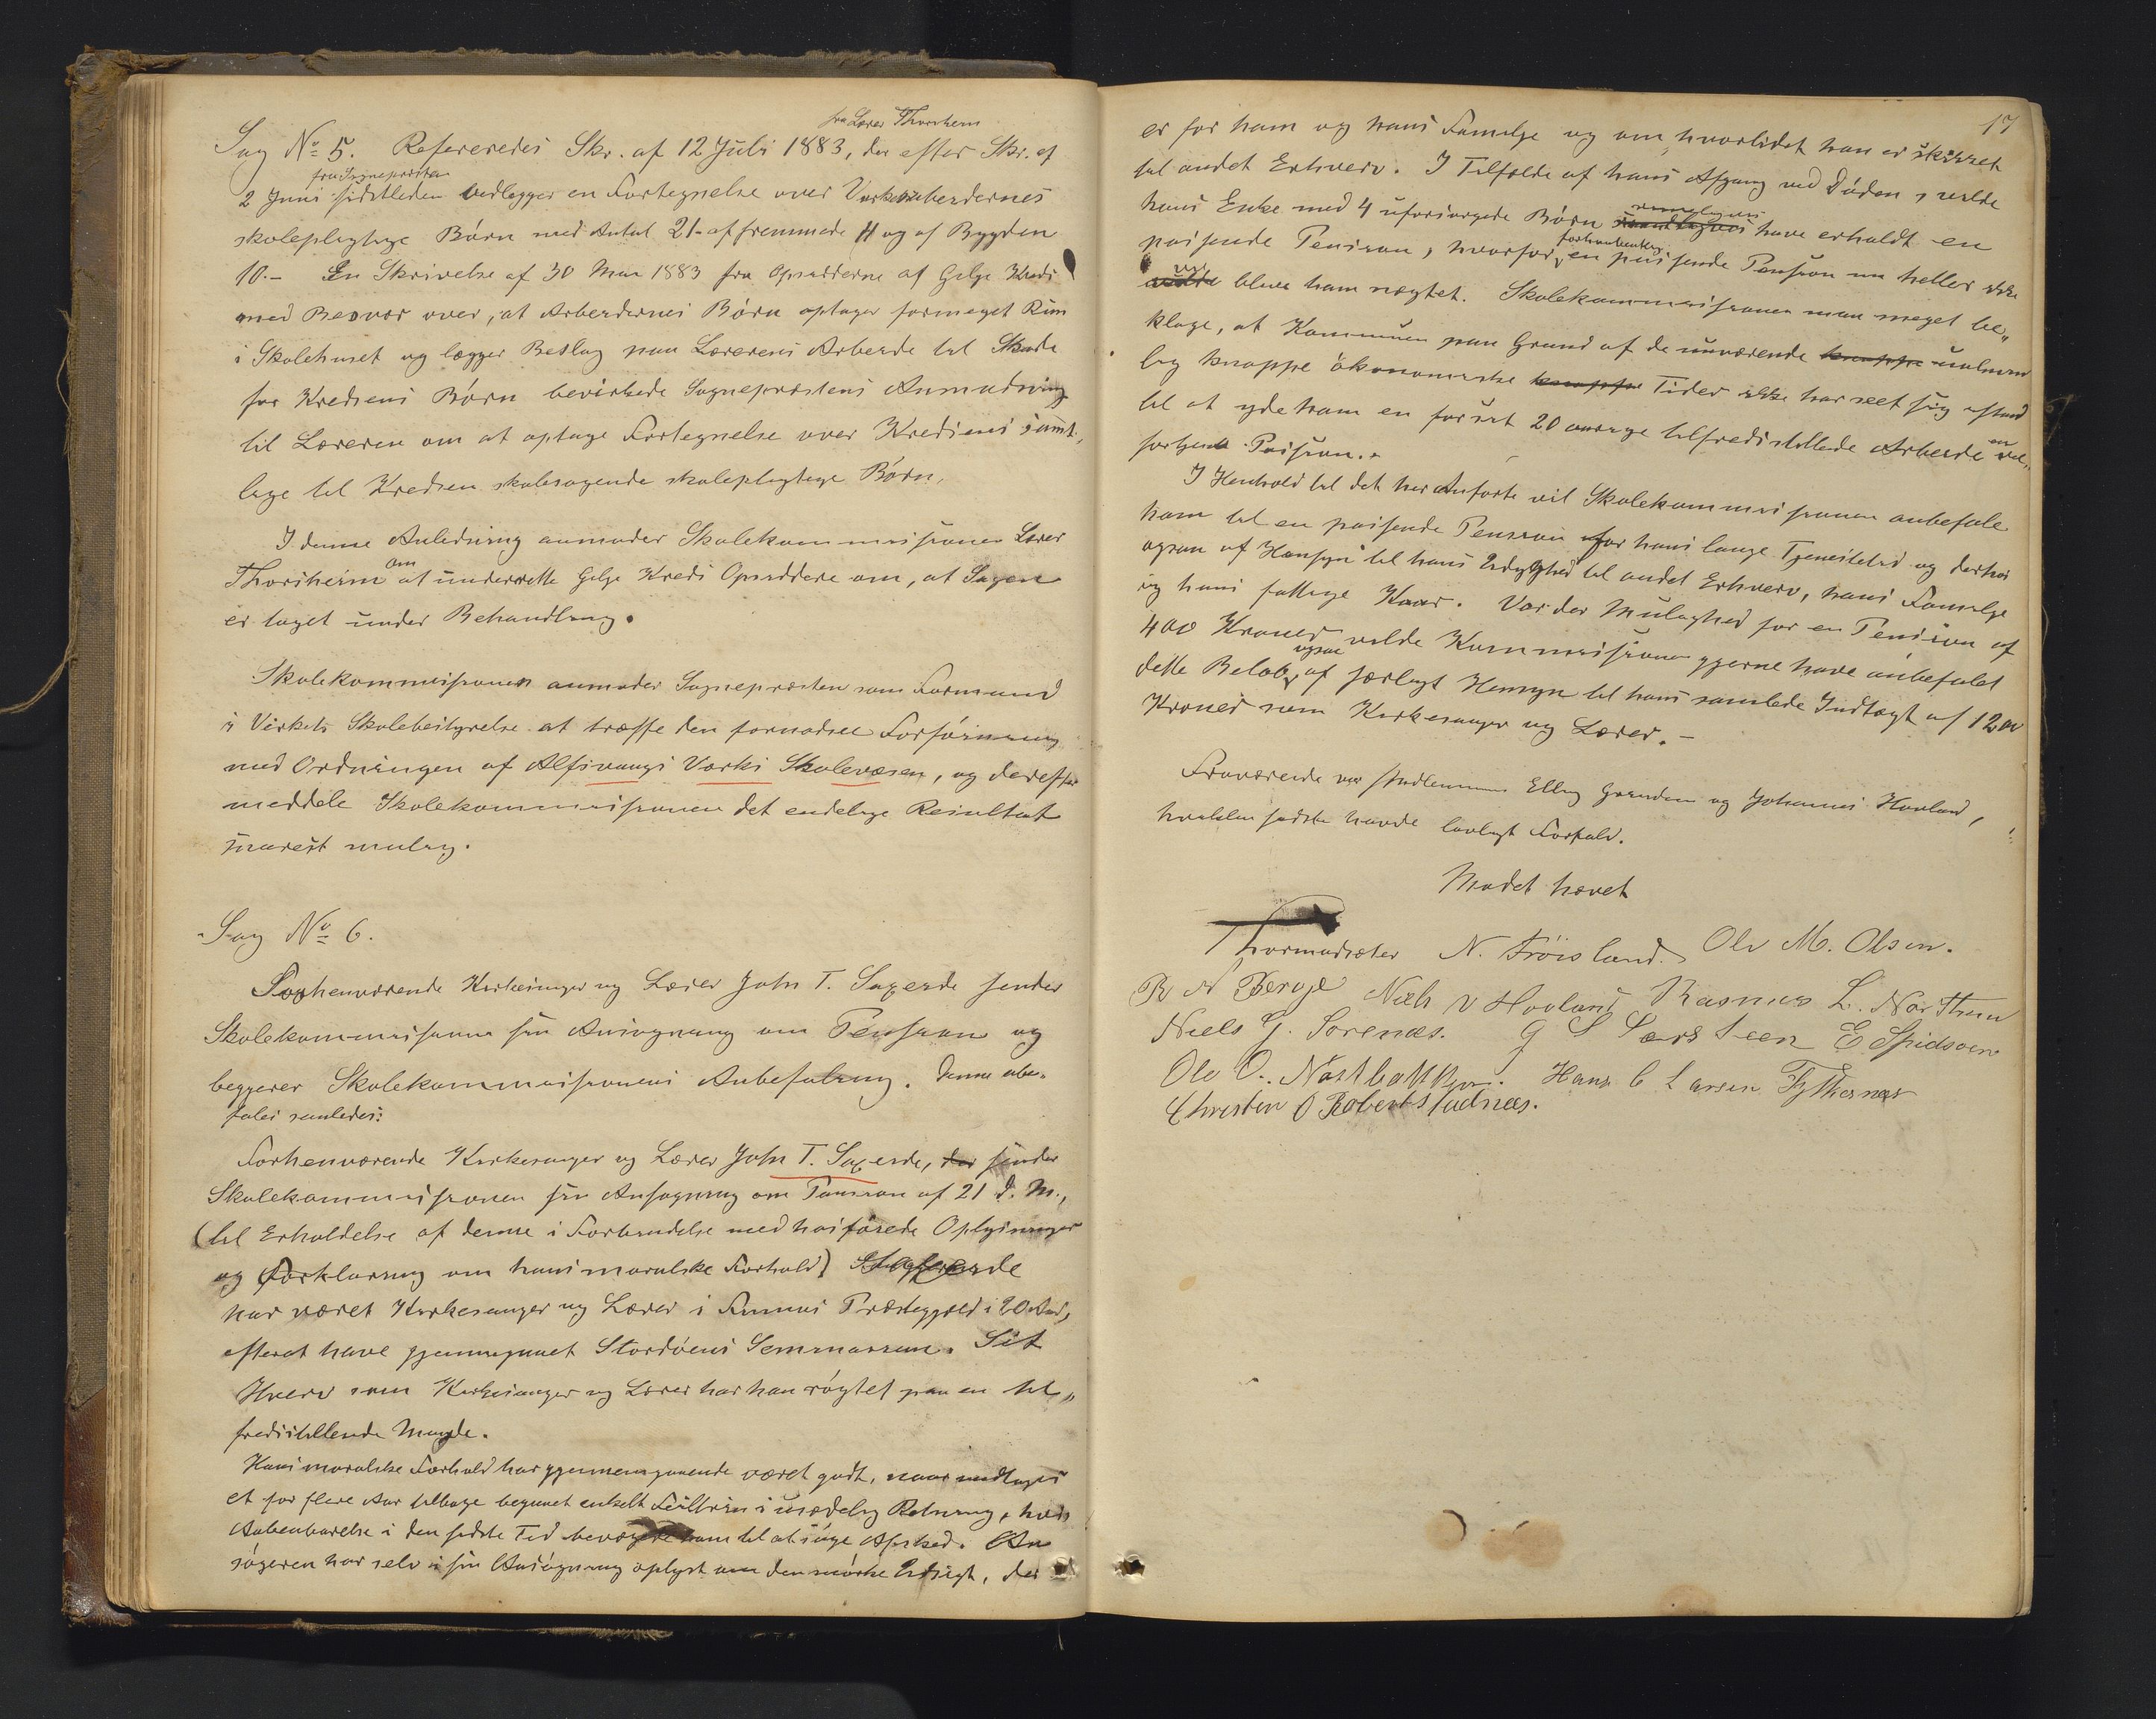 fra Lærer Thorsheim
Sag No 5. Refereredes Skr. af 12 Juli 1883, der efter Skr. af
fra Sognepræsten
2 Juni sidstleden vedlægger en Fortegnelse over Værksarbeidernes
skolepligtige Børn med Antal 21 - af fremmede 11 og af Bygden
10. - En Skrivelse af 30 Mai 1883 fra Opsidderne af Gilje Kreds
med Besvær over, at Arbeidernes Børn optager formeget Rum
i Skolehuset og lægger Beslag paa Lærerens Arbeide til Skade
for Kredsens Børn bevirkede Sognepræstens Anmodning
til Læreren om at optage Fortegnelse over Kredsens samt„
lige til Kredsen skolesøgende skolepligtige Børn.
I denne Anledning anmoder Skolekommissionen Lærer
om
Thorsheim at underrette Gilje Kreds Opsiddere om, at Sagen
er taget under Behandling.
Skolekommissionen anmoder Sognepræsten som Formand
i Verkets Skolebestyrelse at træffe den fornødne Forføining
med Ordningen af Alfsvaags Værks Skolevæsen, og derefter
meddele Skolekommissionen det endelige Resultat
snarest mulig.
Sag No 6.
Forhenværende Kirkesanger og Lærer John T. Sageide sender
Skolekommissionen sin Ansøgning om Pension og
begjærer Skolekommissionens Anbefaling. Denne anbe„
fales saaledes:
Forhenværende Kirkesanger og Lærer John T. Sageide, der sender
Skolekommissionen sin Ansøgning om Pension af 21 d. M.,
(til Erholdelse af denne i Forbindelse med hosføiede Oplysninger
og Forklaring om hans moralske Forhold) Sageide
har været Kirkesanger og Lærer i Finnaas Præstegjeld i 20 Aar,
efterat have gjennemgaaet Stordøens Seminarium. Sit
Hverv som Kirkesanger og Lærer har han røgtet paa en til„
fredsstillende Maade.
Hans moralske Forhold har gjennemgaaende været godt, naar undtages
et for flere Aar tilbage begaaet enkelt Feiltrin i usædelig Retning, hvis
Aabenbarelse i den sidste Tid bevægede ham til at søge Afsked. An
søgeren har selv i sin Ansøgning oplyst om den mørke Udsigt, der
17
er for ham og hans Familje og om, hvorlidet han er skikket
til andet Erhverv. I Tilfælde af hans Afgang ved Døden, vilde
rimeligvis
hans Enke med 4 uforsørgede Børn have erholdt en
forhaabentlig
passende Pension, hvorfor en passende Pension nu heller ikke
vil
vilde blive ham nægtet. Skolekommissionen maa meget be„
klage, at Kommunen paa Grund af de nuværende knappe ualminde
lig knappe økonomiske knappe Tider ikke har seet sig istand
til at yde ham en for sit 20 aarige tilfredsstillende Arbeide en vel„
fortjent Pension. -
I Henhold til det her Anførte vil Skolekommissionen anbefale
ham til en passende Pension for hans lange Tjenestetid og derhos
ogsaa af Hensyn til hans Udygtighed til andet Erhverv, hans Familje
og hans fattige Kaar. Var der Mulighed for en Pension af
400 Kroner vilde Kommissionen gjerne have anbefalet
ogsaa
dette Beløb, af særligt Hensyn til hans samlede Indtægt af 1200
Kroner som Kirkesanger og Lærer. -
Fraværende var Medlemmer Elling Grinden og Johannes Hovland,
hvilken sidste havde lovligt Forfald.
Mødet hævet
Thormodsæter N. Fröisland. Ole M. Olsen.
R N Berge Nils V Hovland Rasmus L. Northun
Niels G. Sorenæs. G S Særsteen E. Spidsoen
Ole O. Nöstbakken. Hans C Larsen Fytkernæs
Christen O Robertstadnæs.